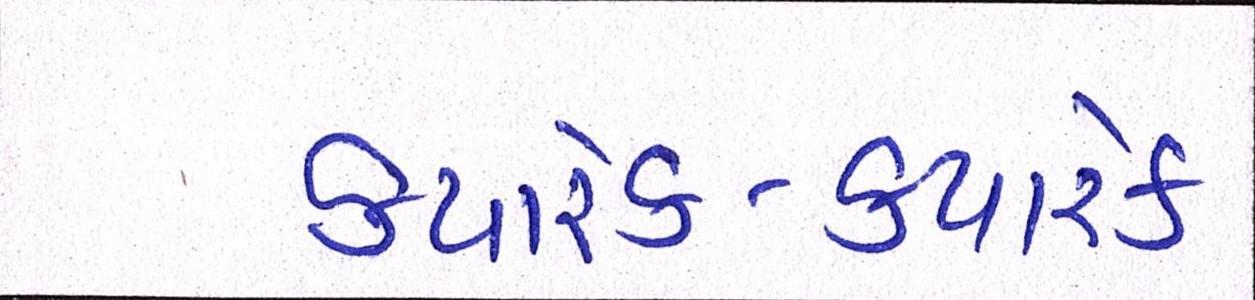 ક્યારેક-ક્યારેક